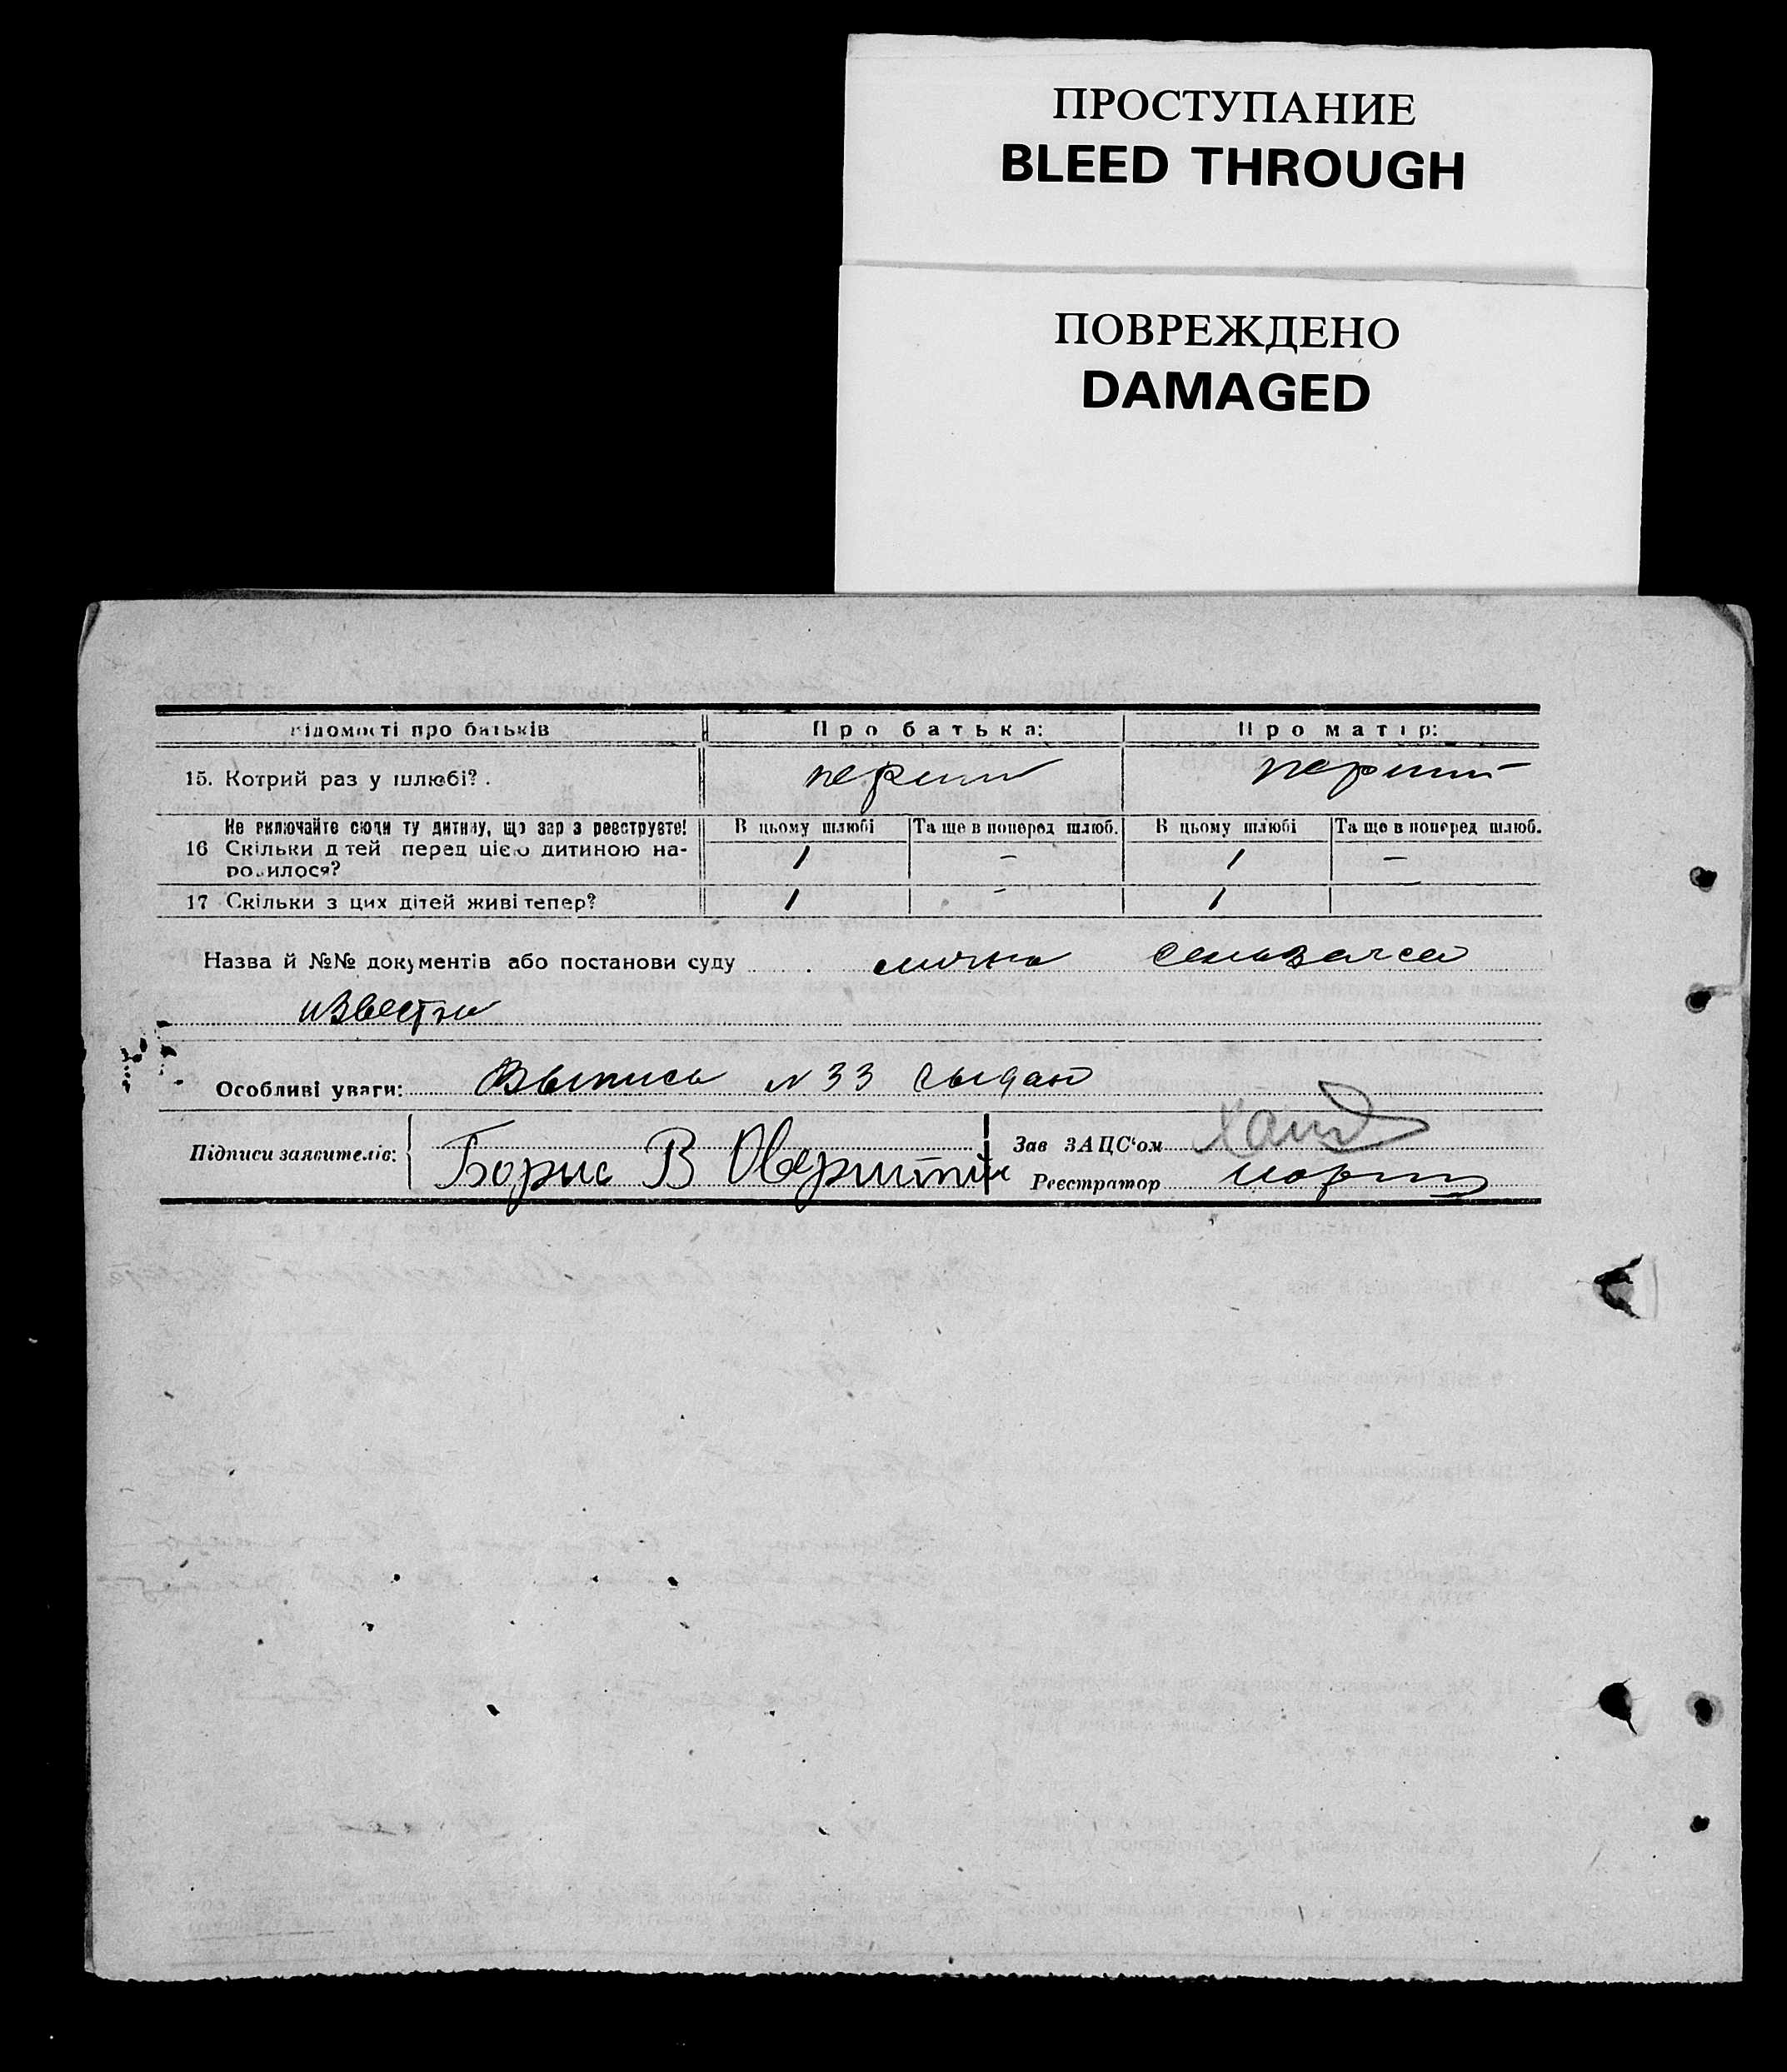 ПРОСТУПАНИЕ
BLEED THROUGH
ПОВРЕЖДЕНО
DAMAGED
відомості про батьків Про батька: Про матір:
15. Котрий раз у шлюбі? . перший перший
Не включайте сюди ту дитину, що зар з реєструєте! В цьому шлюбі Та ще в поперед шлюб. В цьому шлюбі Та ще в поперед шлюб.
16 Скільки д тей перед цією дитиною на- 1 – 1 –
родилося?
17 Скільки з цих дітей живі тепер? 1 – 1
Назва й №№ документів або постанови суду
известны
Особливі уваги: Выпись N 33 выдано
Підписи заявителів: Борис В Зав ЗАЦС‘ом
Реєстратор